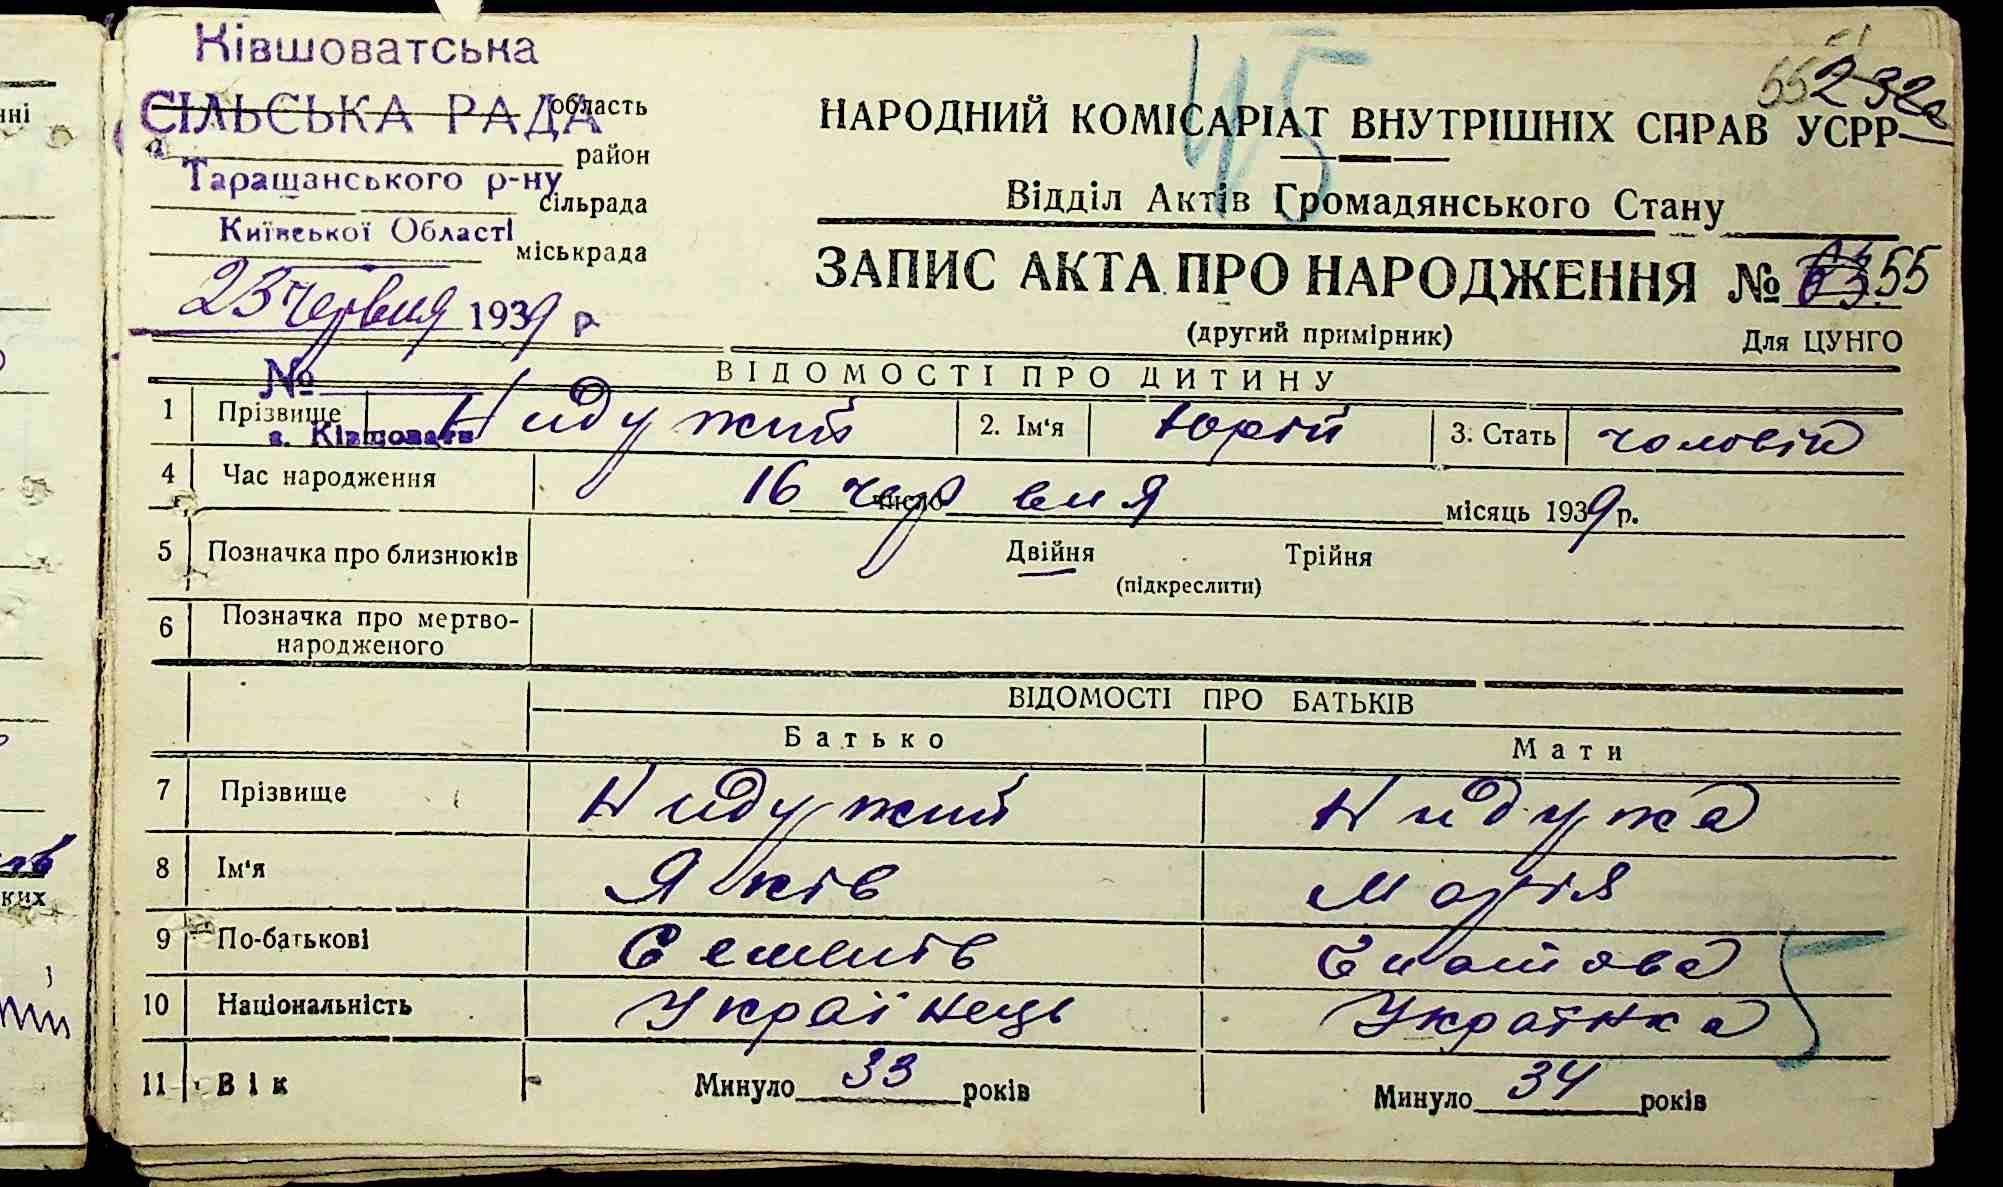 Ківшоватська
СІЛЬСЬКА РАДА область
район
Таращанського р-ну
сільрада
Київської Області
міськрада
23 червня 1939 р.
№
с. Ківшовата
55 232
45
НАРОДНИЙ КОМІСАРІАТ ВНУТРІШНІХ СПРАВ УСРР
Відділ Актів Громадянського Стану
ЗАПИС АКТА ПРО НАРОДЖЕННЯ № 55
(другий примірник) Для ЦУНГО
ВІДОМОСТІ ПРО ДИТИНУ
1 Прізвище Нидужий 2. Ім'я Юрій 3. Стать чоловіч
4 Час народження 16 число червня місяць 1939 р.
5 Позначка про близнюків Двійня Трійня
(підкреслити)
6 Позначка про мертво-
народженого
ВІДОМОСТІ ПРО БАТЬКІВ
Батько Мати
7 Прізвище Нидужий Нидужа
8 Ім'я Яків Марія
9 По-батькові Семенів Гнатова
10 Національність Українець Українка
5
11 Вік Минуло 33 років Минуло 34 років
ких
нні